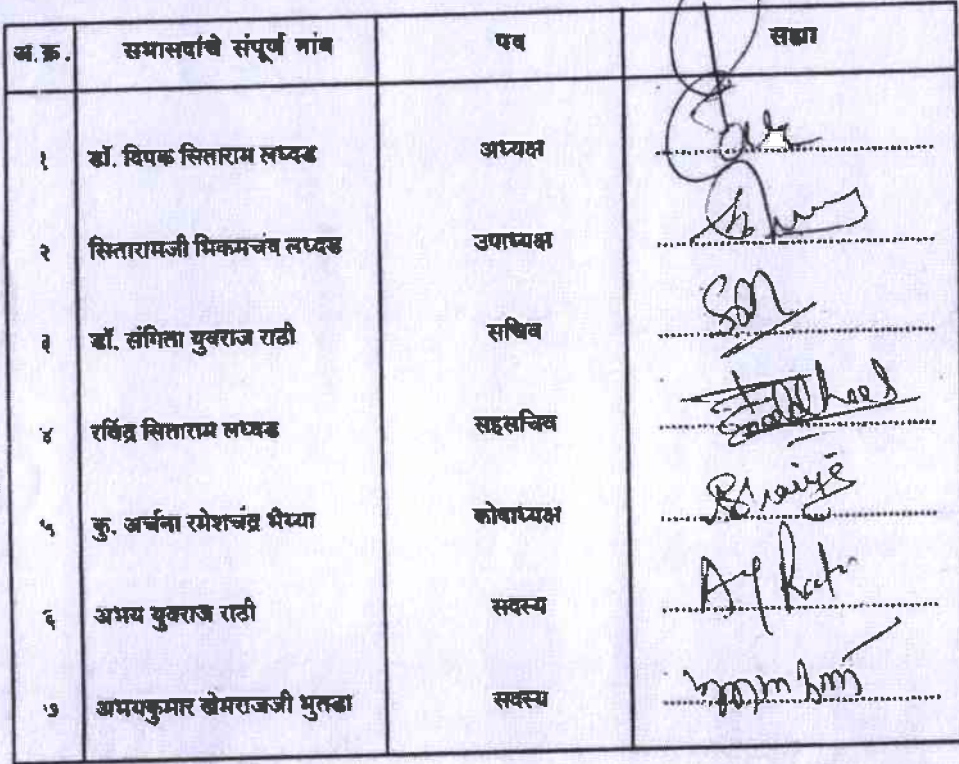 अ.क्र. सभासदांचे संपूर्ण नांव पद सह्या
१ डॉ. दिपक सिताराम लध्दड अध्यक्ष
२ सितारामजी भिकमचंद लध्दड उपाध्यक्ष
३ डॉ. संगिता युवराज राठी सचिव
४ रविंद्र सिताराम लध्दड सहसचिव
५ कु. अर्चना रमेशचंद्र भैय्या कोषाध्यक्ष
६ अभय युवराज राठी सदस्य
७ अभयकुमार खेमराजजी भुतडा सदस्य